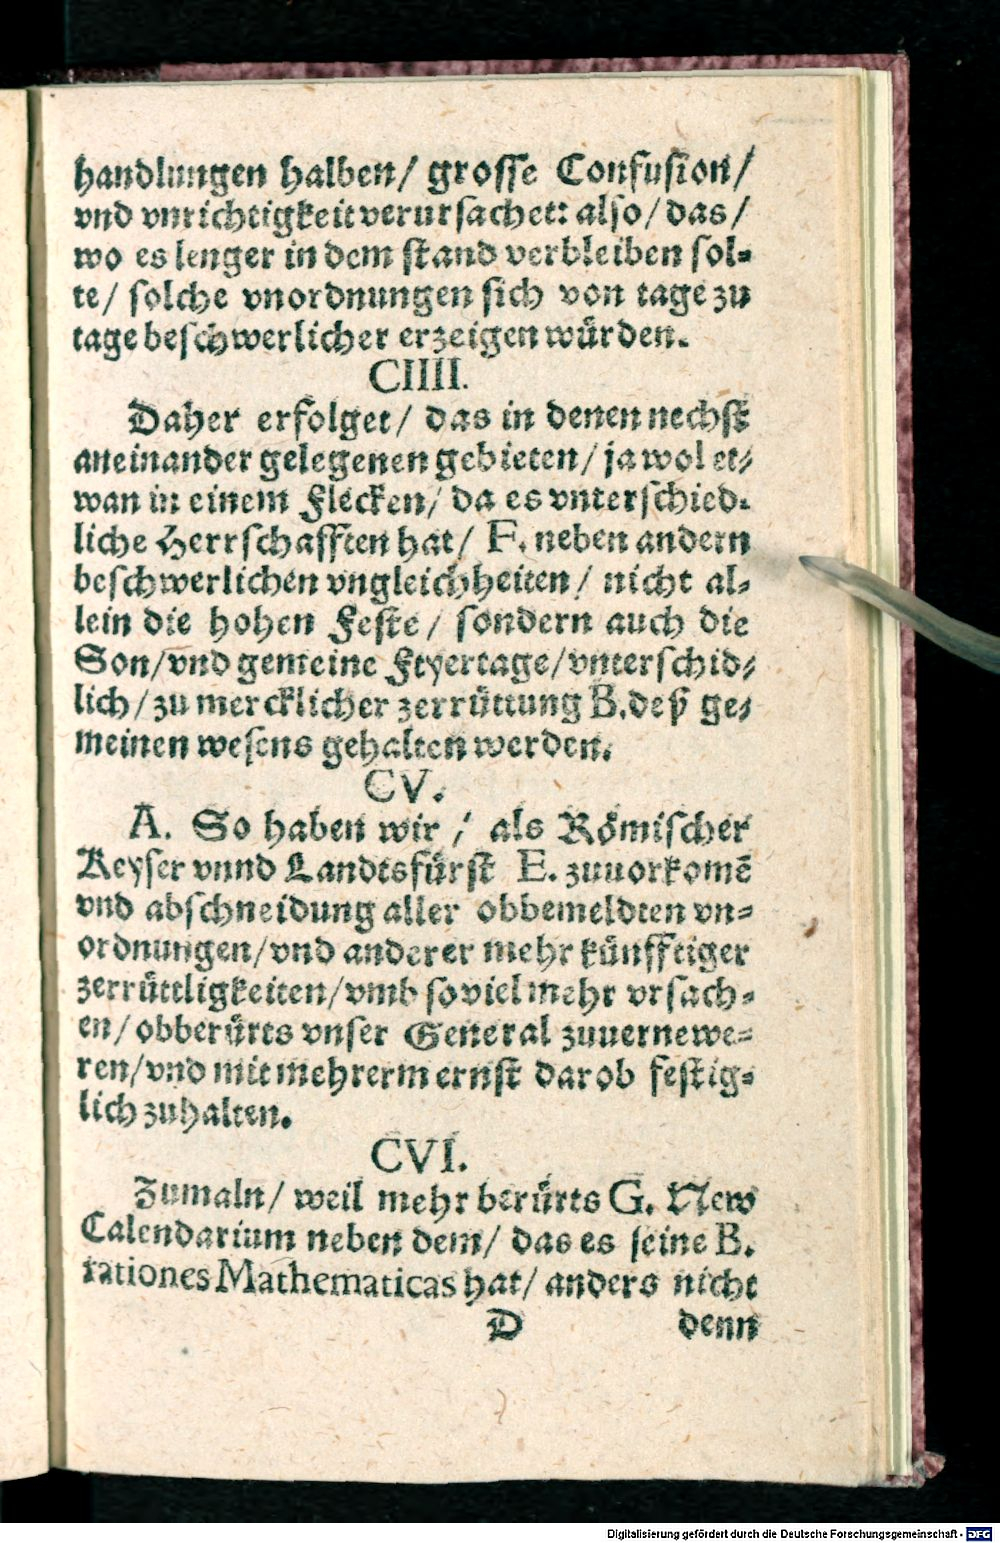 handlungen halben/ grosse Confusion/
vnd vnrichtigkeit verursachet: also/ das/
wo es lenger in dem stand verbleiben sol-
te/ solche vnordnungen sich von tage zu
tage beschwerlicher erzeigen würden.
CIIII.
Daher erfolget/ das in denen nechst
aneinander gelegenen gebieten/ ja wol et-
wan in einem Flecken/ da es vnterschied-
liche Herrschafften hat/ F. neben andern
beschwerlichen vngleichheiten/ nicht al-
lein die hohen Feste/ sondern auch die
Son/vnd gemeine Feyertage/vnterschid-
lich/ zu mercklicher zerrüttung B. deß ge-
meinen wesens gehalten werden.
CV.
A. So haben wir/ als Römischer
Keyser vnnd Landtsfürst E. zuuorkomē
vnd abschneidung aller obbemeldten vn-
ordnungen/vnd anderer mehr künfftiger
zerrüttligkeiten/vmb so viel mehr vrsach-
en/ obberürts vnser General zuuernewe-
ren/vnd mit mehrerm ernst darob festig-
lich zuhalten.
CVI.
Zumaln/ weil mehr berürts G. New
Calendarium neben dem/ das es seine B.
rationes Mathematicas hat/ anders nicht
D denn
Digitalisierung gefördert durch die Deutsche Forschungsgemeinschaft - DFG